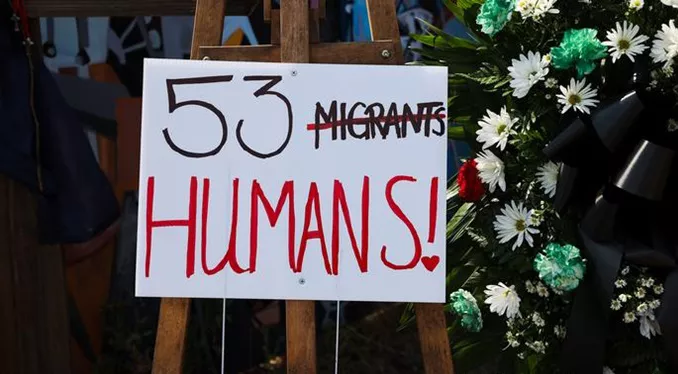 53 MIGRANTS
HUMANS!